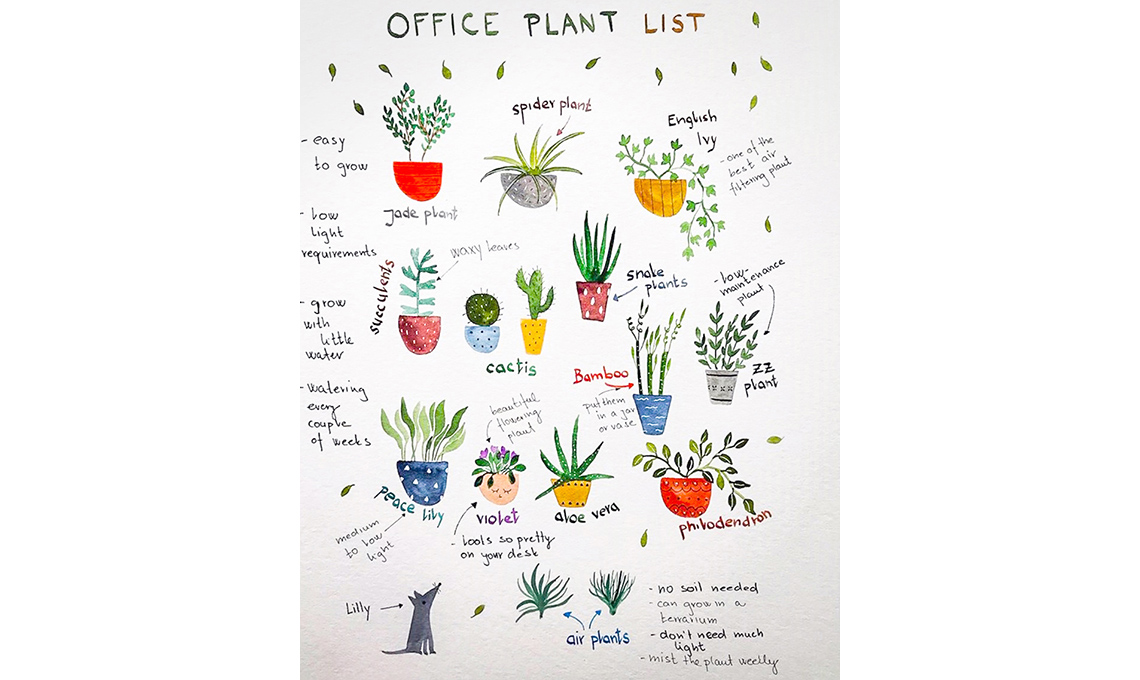 OFFICE PLANT LIST
spider plant
English
Ivy
- one of the
best air
filtering plant
- easy
to grow
Jade plant
- low
light
requirements
waxy leaves
succulents
snake
plants
- low-
maintenance
plant
- grow
with
little
water
cactis
Bamboo
put them
in a jar
or vase
ZZ
plant
- watering
every
couple
of weeks
beautiful
flowering
plant
peace lily
violet
aloe vera
philodendron
medium
to low
light
- looks so pretty
on your desk
Lilly
air plants
- no soil needed
- can grow in a
terrarium
- don't need much
light
- mist the plant weekly